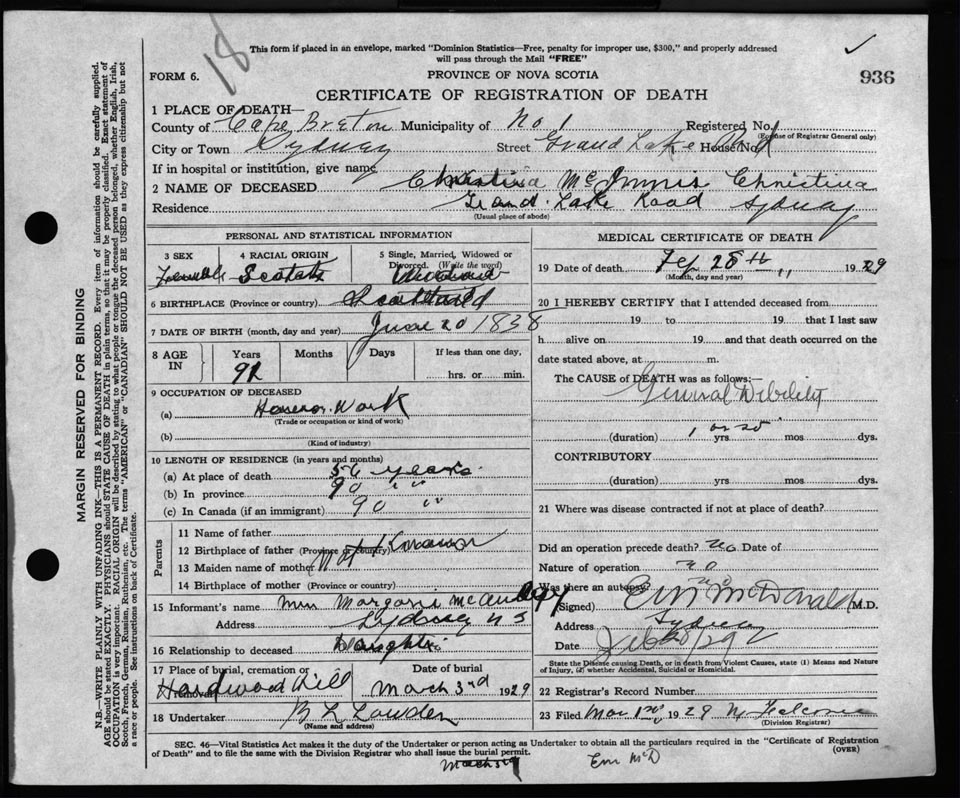 18
This form if placed in an envelope, marked "Dominion Statistics—Free, penalty for improper use, $300," and properly addressed
will pass through the Mail "FREE"
936
FORM 6.
PROVINCE OF NOVA SCOTIA
CERTIFICATE OF REGISTRATION OF DEATH
1 PLACE OF DEATH—
County of Cape Breton Municipality of No 1 Registered No.
(For use of Registrar General only)
City or Town Sydney Street Grand Lake Rd House No.
If in hospital or institution, give name
2 NAME OF DECEASED Christina McInnis Christina
Residence Grand Lake Road Sydney
(Usual place of abode)
PERSONAL AND STATISTICAL INFORMATION
3 SEX 4 RACIAL ORIGIN 5 Single, Married, Widowed or
Divorced. (Write the word)
Female Scotch Widow
6 BIRTHPLACE (Province or country) Scotland
7 DATE OF BIRTH (month, day and year) June 20 1838
8 AGE IN Years Months Days If less than one day,
hrs. or min.
9 OCCUPATION OF DECEASED
(a) House Work
(Trade or occupation or kind of work)
(b)
(Kind of industry)
10 LENGTH OF RESIDENCE (in years and months)
(a) At place of death 56 years
(b) In province 90 " "
(c) In Canada (if an immigrant) 90 "
Parents
11 Name of father
12 Birthplace of father (Province or country) Not Known
13 Maiden name of mother
14 Birthplace of mother (Province or country)
15 Informant's name Mrs Margaret
Address Sydney N S
16 Relationship to deceased Daughter
17 Place of burial, cremation or removal Date of burial
Hardwood Hill March 3rd 1929
18 Undertaker B L Lowden
(Name and address)
MEDICAL CERTIFICATE OF DEATH
19 Date of death Feb 28th 1929
(Month, day and year)
20 I HEREBY CERTIFY that I attended deceased from
19 to 19 that I last saw
h alive on 19 and that death occurred on the
date stated above, at m.
The CAUSE of DEATH was as follows:—
General Debility
(duration) 1 or so yrs mos dys.
CONTRIBUTORY
(duration) yrs mos dys.
21 Where was disease contracted if not at place of death?
Did an operation precede death? no Date of
Nature of operation no
Was there an autopsy no
(Signed) McDonald M.D.
Address Sydney
Date
State the Disease causing Death, or in death from Violent Causes, state (1) Means and Nature
of Injury, (2) whether Accidental, Suicidal or Homicidal.
22 Registrar's Record Number
23 Filed Mar 1st 1929
(Division Registrar)
SEC. 46—Vital Statistics Act makes it the duty of the Undertaker or person acting as Undertaker to obtain all the particulars required in the "Certificate of Registration
of Death" and to file the same with the Division Registrar who shall issue the burial permit.
(OVER)
MARGIN RESERVED FOR BINDING
N.B.—WRITE PLAINLY WITH UNFADING INK—THIS IS A PERMANENT RECORD. Every item of information should be carefully supplied.
AGE should be stated EXACTLY. PHYSICIANS should STATE CAUSE OF DEATH in plain terms, so that it may be properly classified. Exact statement of
OCCUPATION is very important. RACIAL ORIGIN will be described by stating to what people or tongue the deceased person belonged, whether English, Irish,
Scotch, French, German, Russian, Ruthenian, etc. The terms "AMERICAN" or "CANADIAN" SHOULD NOT BE USED as they express citizenship but not
a race or people. See instructions on back of Certificate.